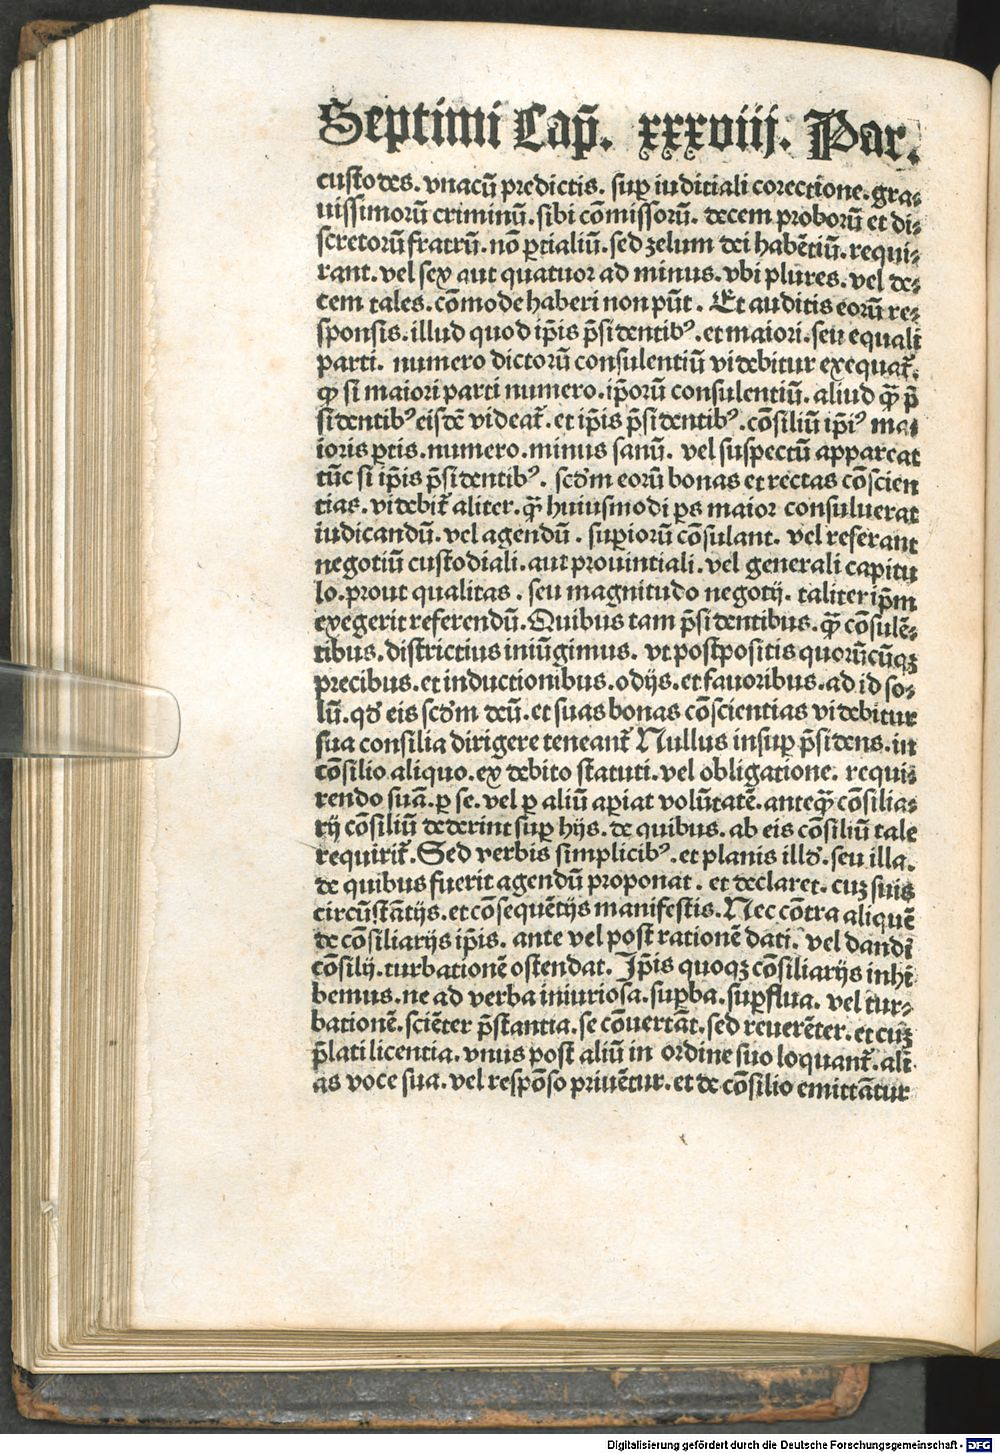 Septimi Cap̃. xxxviij. Par.
custodes. vnacũ predictis. sup̱ iuditiali corectione. gra⸗
uissimorũ criminũ. sibi cõmissorũ. decem proborũ et di⸗
scretorũ fratrũ. nõ ꝑtialiũ. sed zelum dei habẽtiũ. requi⸗
rant. vel sex aut quatuor ad minus. vbi plures. vel de⸗
cem tales. cõmode haberi non pũt. Et auditis eorũ re⸗
sponsis. illud quod ip̃is p̃sidentibꝰ. et maiori. seu equali
parti. numero dictorũ consulentiũ videbitur exequat᷑.
ꝙ si maiori parti numero. ip̃orũ consulentiũ. aliud q̃ꝫ p̃
sidentibꝰ eisdẽ videat᷑. et ip̃is p̃sidentibꝰ. cõsiliũ ip̃iꝰ ma⸗
ioris ꝑtis. numero. minus sanũ. vel suspectũ appareat
tũc si ip̃is p̃sidentibꝰ. scd̃m eorũ bonas et rectas cõscien
tias. videbit᷑ aliter. q̃ꝫ huiusmodi ꝑs maior consuluerat
iudicandũ. vel agendũ. suꝑiorũ cõsulant. vel referant
negotiũ custodiali. aut prouintiali. vel generali capitu
lo. prout qualitas. seu magnitudo negotij. taliter ip̃m
exegerit referendũ. Quibus tam p̃sidentibus. q̃ꝫ cõsulẽ⸗
tibus. districtius iniũgimus. vt postpositis quorũcũqꝫ
precibus. et inductionibus. odijs. et fauoribus. ad id so⸗
lũ. qd̃ eis scd̃m deũ. et suas bonas cõscientias videbitur
sua consilia dirigere teneant᷑ Nullus insuꝑ p̃sidens. in
cõsilio aliquo. ex debito statuti. vel obligatione. requi⸗
rendo suã. ꝑ se. vel ꝑ aliũ aꝑiat volũtatẽ. anteq̃ꝫ cõsilia⸗
rij cõsiliũ dederint suꝑ hijs. de quibus. ab eis cõsiliũ tale
requirit᷑. Sed verbis simplicibꝰ. et planis illd̃. seu illa.
de quibus fuerit agendũ proponat. et declaret. cuꝫ suis
circũstãtijs. et cõsequẽtijs manifestis. Nec cõtra aliquẽ
de cõsiliarijs ip̃is. ante vel post rationẽ dati. vel dandi
cõsilij. turbationẽ ostendat. Ip̃is quoqꝫ cõsiliarijs inhi
bemus. ne ad verba iniuriosa. suꝑba. suꝑflua. vel tur⸗
bationẽ. sciẽter p̃stantia. se cõuertãt. sed reuerẽter. et cuꝫ
p̃lati licentia. vnus post aliũ in ordine suo loquant᷑. ali
as voce sua. vel respõso priuẽtur. et de cõsilio emittãtur
Digitalisierung gefördert durch die Deutsche Forschungsgemeinschaft - DFG